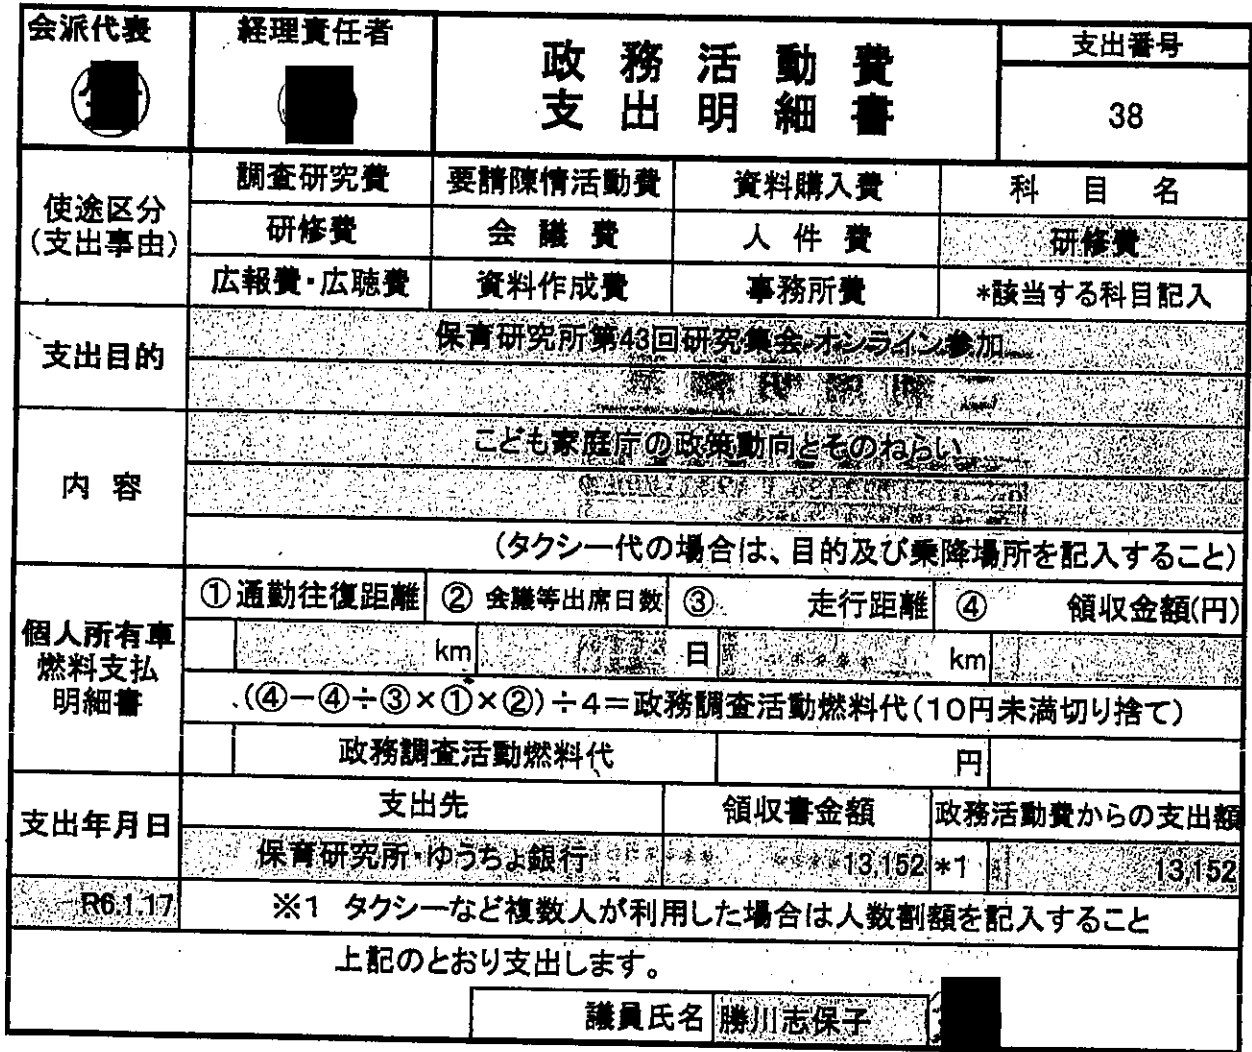 会派代表 経理責任者 政務活動費 支出番号
支出明細書 38
使途区分 調査研究費 要請陳情活動費 資料購入費 科目名
(支出事由) 研修費 会議費 人件費 研修費
広報費・広聴費 資料作成費 事務所費 *該当する科目記入
支出目的 保育研究所第43回研究集会オンライン参加
内容 こども家庭庁の政策動向とそのねらい
(タクシー代の場合は、目的及び乗降場所を記入すること)
個人所有車 ①通勤往復距離 ②会議等出席日数 ③走行距離 ④領収金額(円)
燃料支払 km 日 km
明細書 (④-④÷③×①×②)÷4=政務調査活動燃料代(10円未満切り捨て)
政務調査活動燃料代 円
支出年月日 支出先 領収書金額 政務活動費からの支出額
保育研究所・ゆうちょ銀行 13,152 *1 13,152
R6.1.17 ※1 タクシーなど複数人が利用した場合は人数割額を記入すること
上記のとおり支出します。
議員氏名 勝川志保子